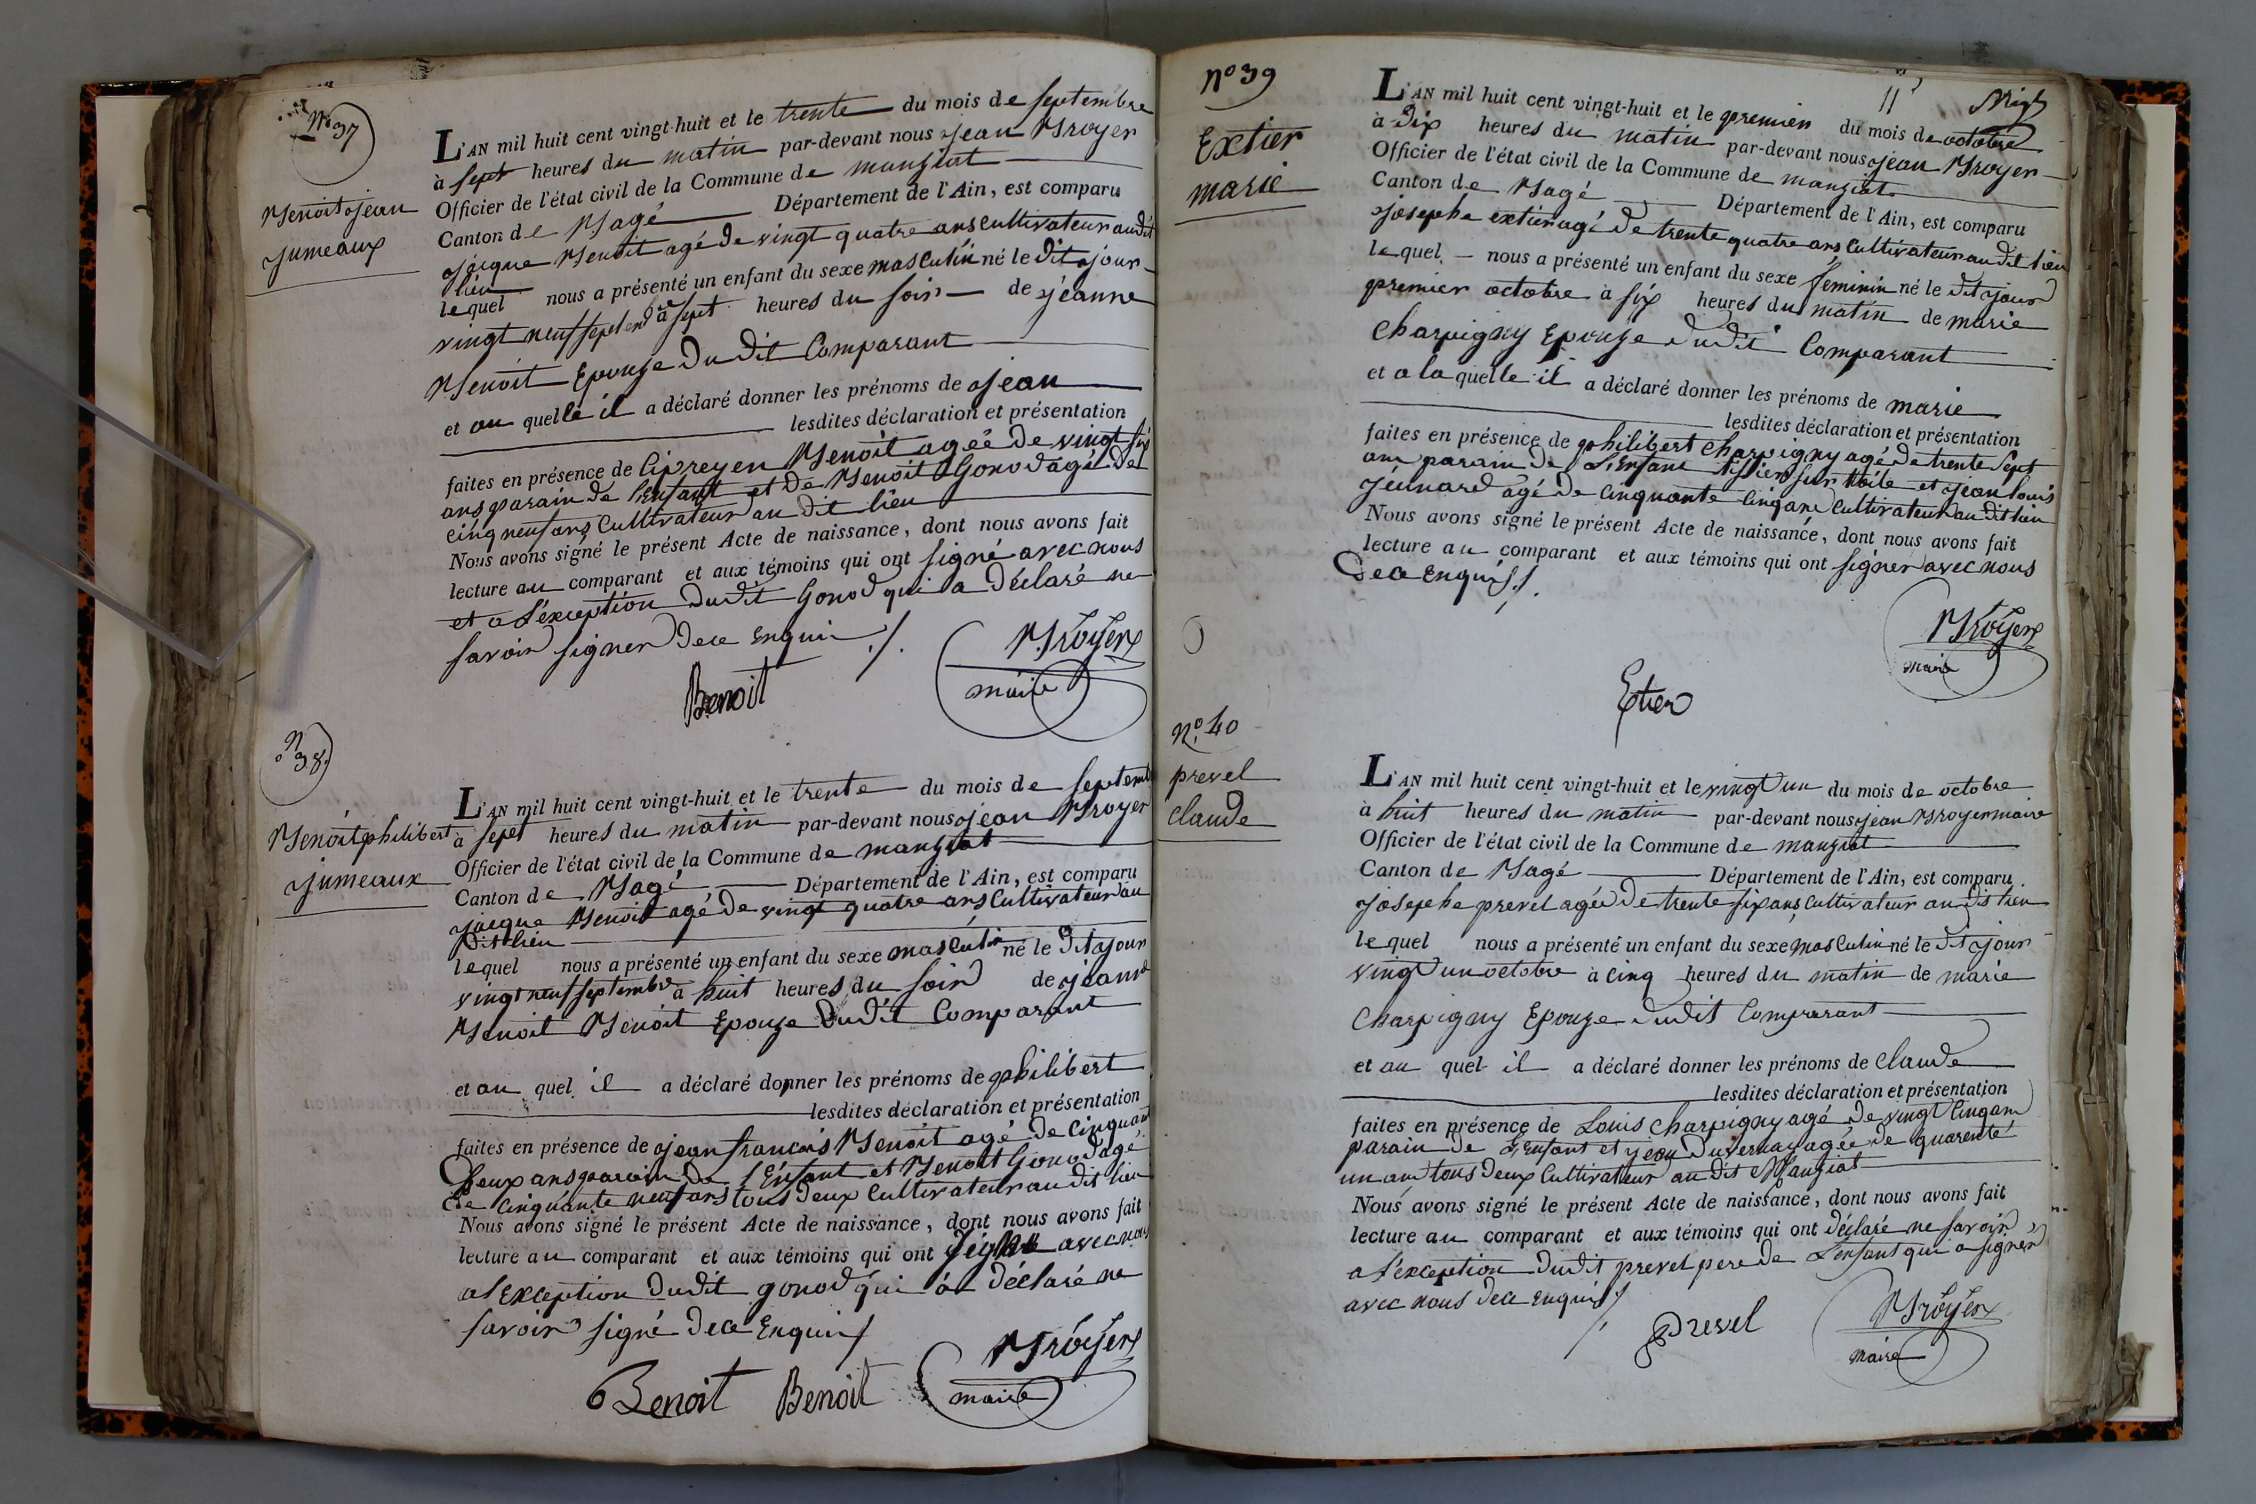 No 37
Benoit jean
jumeaux
L'AN mil huit cent vingt-huit et le trente du mois de septembre
à sept heures du matin par-devant nous jean Broyer
Officier de l'état civil de la Commune de manziat
Canton de Bagé Département de l'Ain, est comparu
jacque Benoit agé de vingt quatre ans cultivateur au dit
lieu
lequel nous a présenté un enfant du sexe masculin né le dit jour
vingt neuf septemb à sept heures du soir de jeanne
Benoit Epouze du dit Comparant
et au quelle il a déclaré donner les prénoms de jean
lesdites déclaration et présentation
faites en présence de Benoit agée de vingt six
ans parain de l'Enfant et de Benoit Gonod agé de
cinq neuf ans Cultivateur au dit lieu
Nous avons signé le présent Acte de naissance, dont nous avons fait
lecture au comparant et aux témoins qui ont signé avec nous
et a l'exception dudit Gonod qui a déclaré ne
savoir signer de ce Enquis ./.
Benoit
Broyer
maire
N° 38.
Benoit philibert
jumeaux
L'AN mil huit cent vingt-huit et le trente du mois de septemb
à sept heures du matin par-devant nous jean Broyer
Officier de l'état civil de la Commune de manziat
Canton de Bagé Département de l'Ain, est comparu
jacque Benoit agé de vingt quatre ans Cultivateur au
dit lieu
lequel nous a présenté un enfant du sexe masculin né le dit jour
vingt neuf septembre à huit heures du soir de jeanne
Benoit Benoit Epouze dudit Comparant
et au quel il a déclaré donner les prénoms de philibert
lesdites déclaration et présentation
faites en présence de jean francois Benoit agé de cinquant
deux ans parain de l'Enfant et Benoit Gonod agé
de cinquante neuf ans tous deux Cultivateur au dit lieu
Nous avons signé le présent Acte de naissance, dont nous avons fait
lecture au comparant et aux témoins qui ont signé avec nous
a l'Exception dudit gonod qui a déclaré ne
savoir signé de ce Enquis /
Benoit Benoit
Broyer
maire
No 39
Extier
marie
11
L'AN mil huit cent vingt-huit et le premier du mois de octobre
à Dix heures du matin par-devant nous jean Broyer
Officier de l'état civil de la Commune de manziat
Canton de Bagé Département de l'Ain, est comparu
josephe extier agé de trente quatre ans Cultivateur au dit lieu
lequel nous a présenté un enfant du sexe féminin né le dit jour
premier octobre à six heures du matin de marie
Charpigny Epouze dudit Comparant
et a la quelle il a déclaré donner les prénoms de marie
lesdites déclaration et présentation
faites en présence de philibert Charpigny agé de trente sept
ans parain de L'Enfant tissier sur toile et jean louis
jeunard agé de cinquante cinq ans Cultivateur au dit lieu
Nous avons signé le présent Acte de naissance, dont nous avons fait
lecture au comparant et aux témoins qui ont signer avec nous
de ce Enquis ./.
Broyer
maire
Etier
No. 40
prevel
claude
L'AN mil huit cent vingt-huit et le vingt un du mois de octobre
à huit heures du matin par-devant nous jean Broyer maire
Officier de l'état civil de la Commune de manziat
Canton de Bagé Département de l'Ain, est comparu
josephe prevel agée de trente six ans Cultivateur au dit lieu
lequel nous a présenté un enfant du sexe masculin né le dit jour
vingt un octobre à cinq heures du matin de marie
Charpigny Epouze dudit Comparant
et au quel il a déclaré donner les prénoms de claude
lesdites déclaration et présentation
faites en présence de Louis Charpigny agé de vingt cinq ans
parain de L'Enfant et jean duvernay agée de quarente
un ans tous deux Cultivateur au dit Manziat
Nous avons signé le présent Acte de naissance, dont nous avons fait
lecture au comparant et aux témoins qui ont déclaré ne savoir
a l'exception dudit prevel pere de L'enfant qui a signer
avec nous de ce Enquis /
Prevel
Broyer
maire